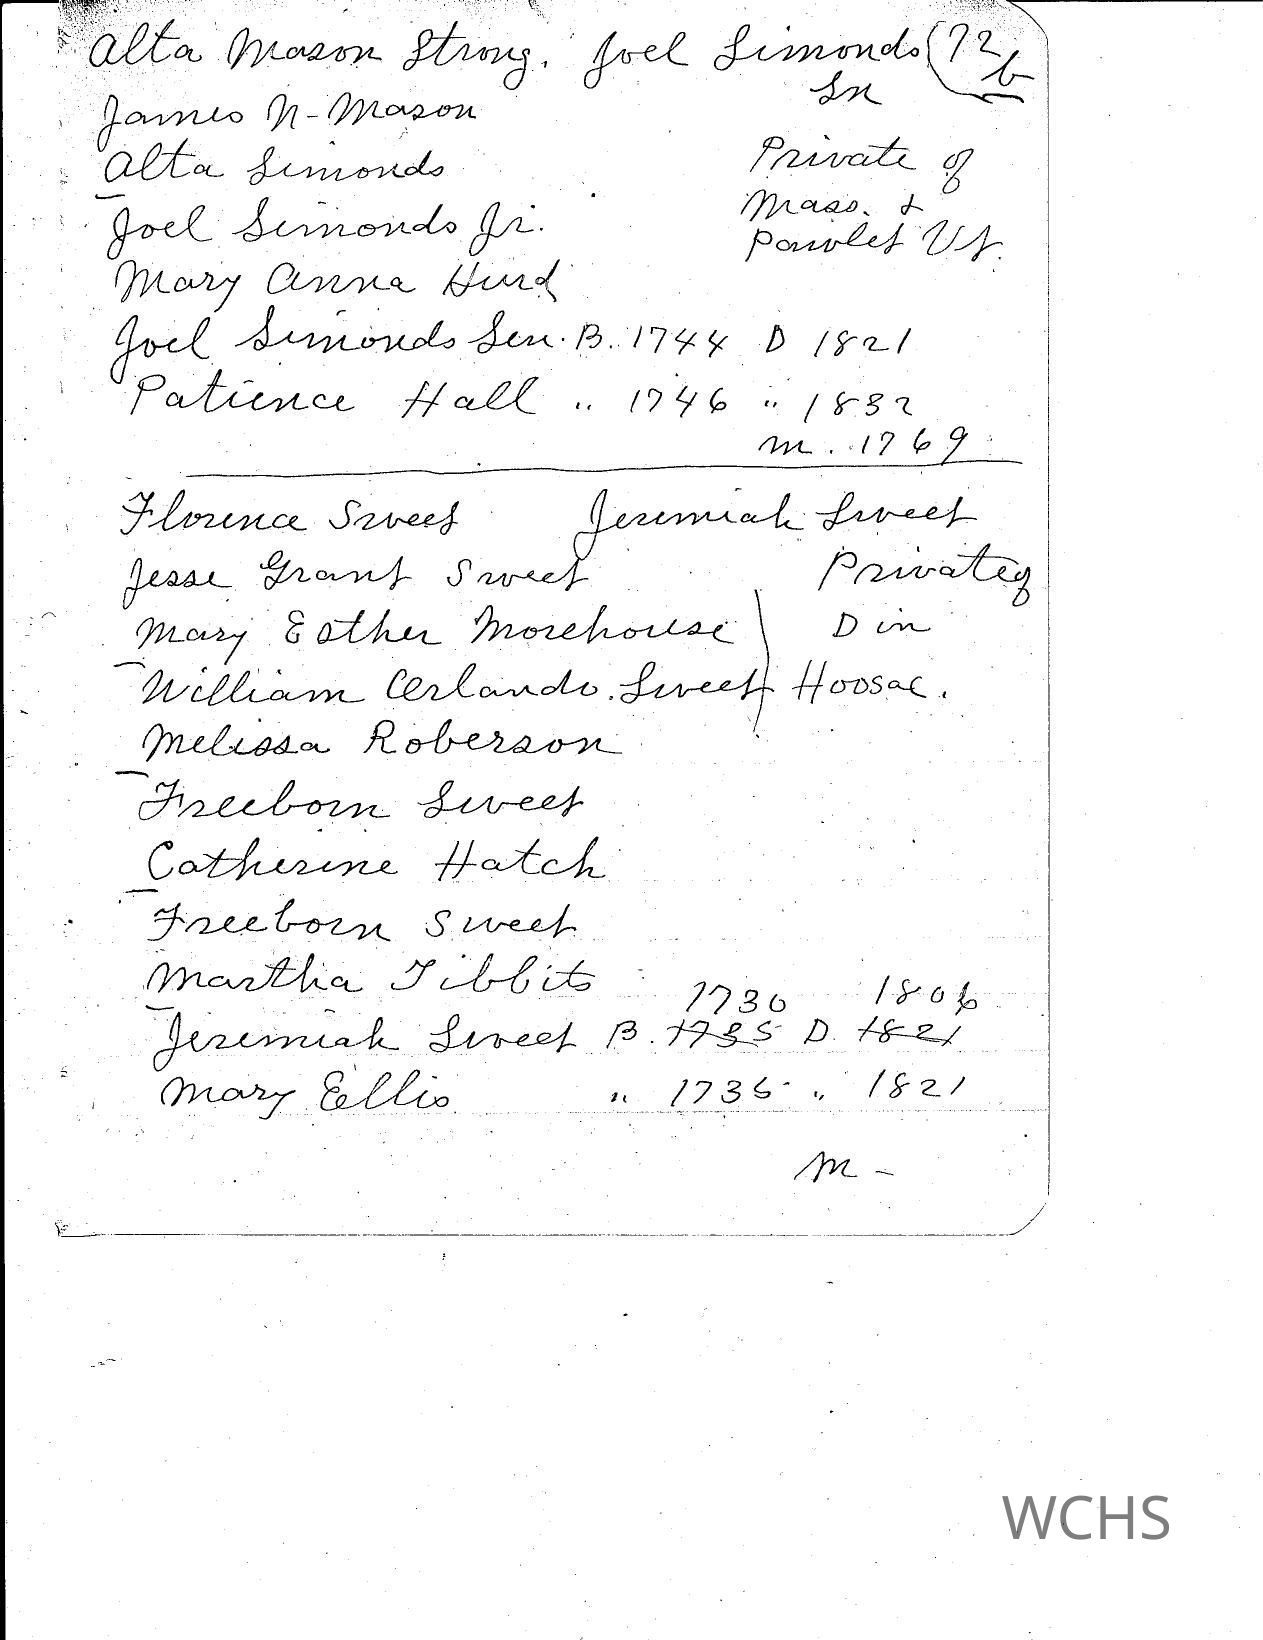 Alta Mason Strong. Joel Simonds (72
Sn b
James N-Mason
Alta Simonds Private of
Mass. &
Joel Simonds Jr. Pawlet Vt.
Mary Anna Hurd
Joel Simonds Sen. B. 1744 D 1821
Patience Hall " 1746 " 1832
m. 1769
Florence Sweet Jeremiah Sweet
Jesse Grant Sweet Private of
Mary Esther Morehouse D in
William Orlando. Sweet Hoosac.
Melissa Roberson
Freeborn Sweet
Catherine Hatch
Freeborn Sweet
Martha Tibbits
1730 1806
Jeremiah Sweet B. 1735 D. 1821
Mary Ellis " 1735 " 1821
m -
WCHS